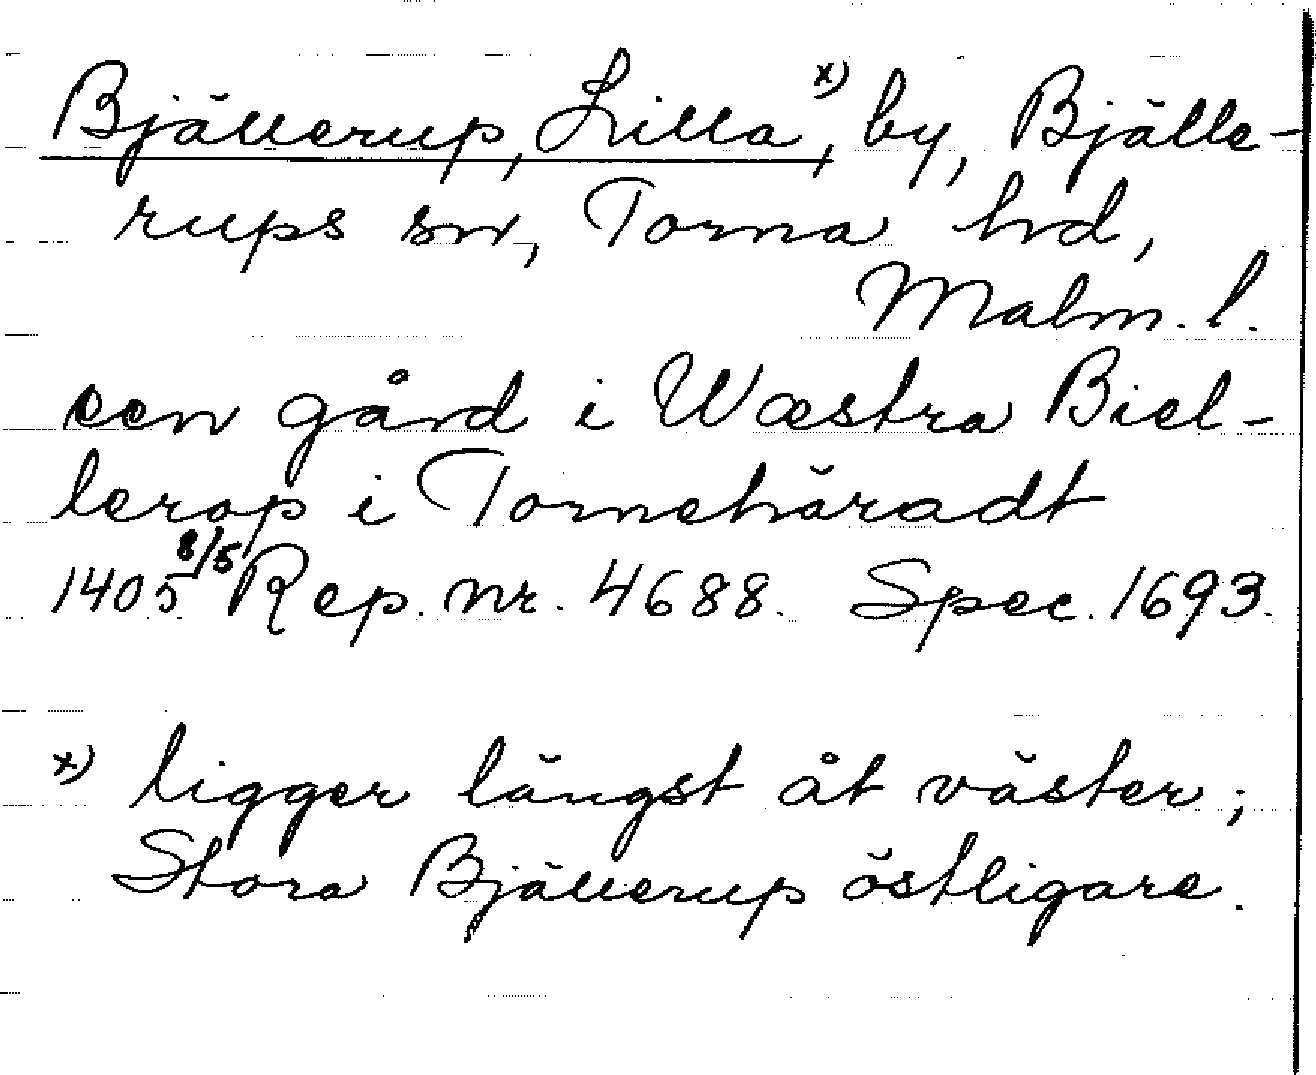 Bjällerup, Lilla x), by, Bjälle-
rups sn, Torna hd,
Malm. l.
een gård i Wæstra Biel-
lerop i Tornehäradt
1405 8/5 Rep. nr. 4688. Spec. 1693.
x) ligger längst åt väster;
Stora Bjällerup östligare.